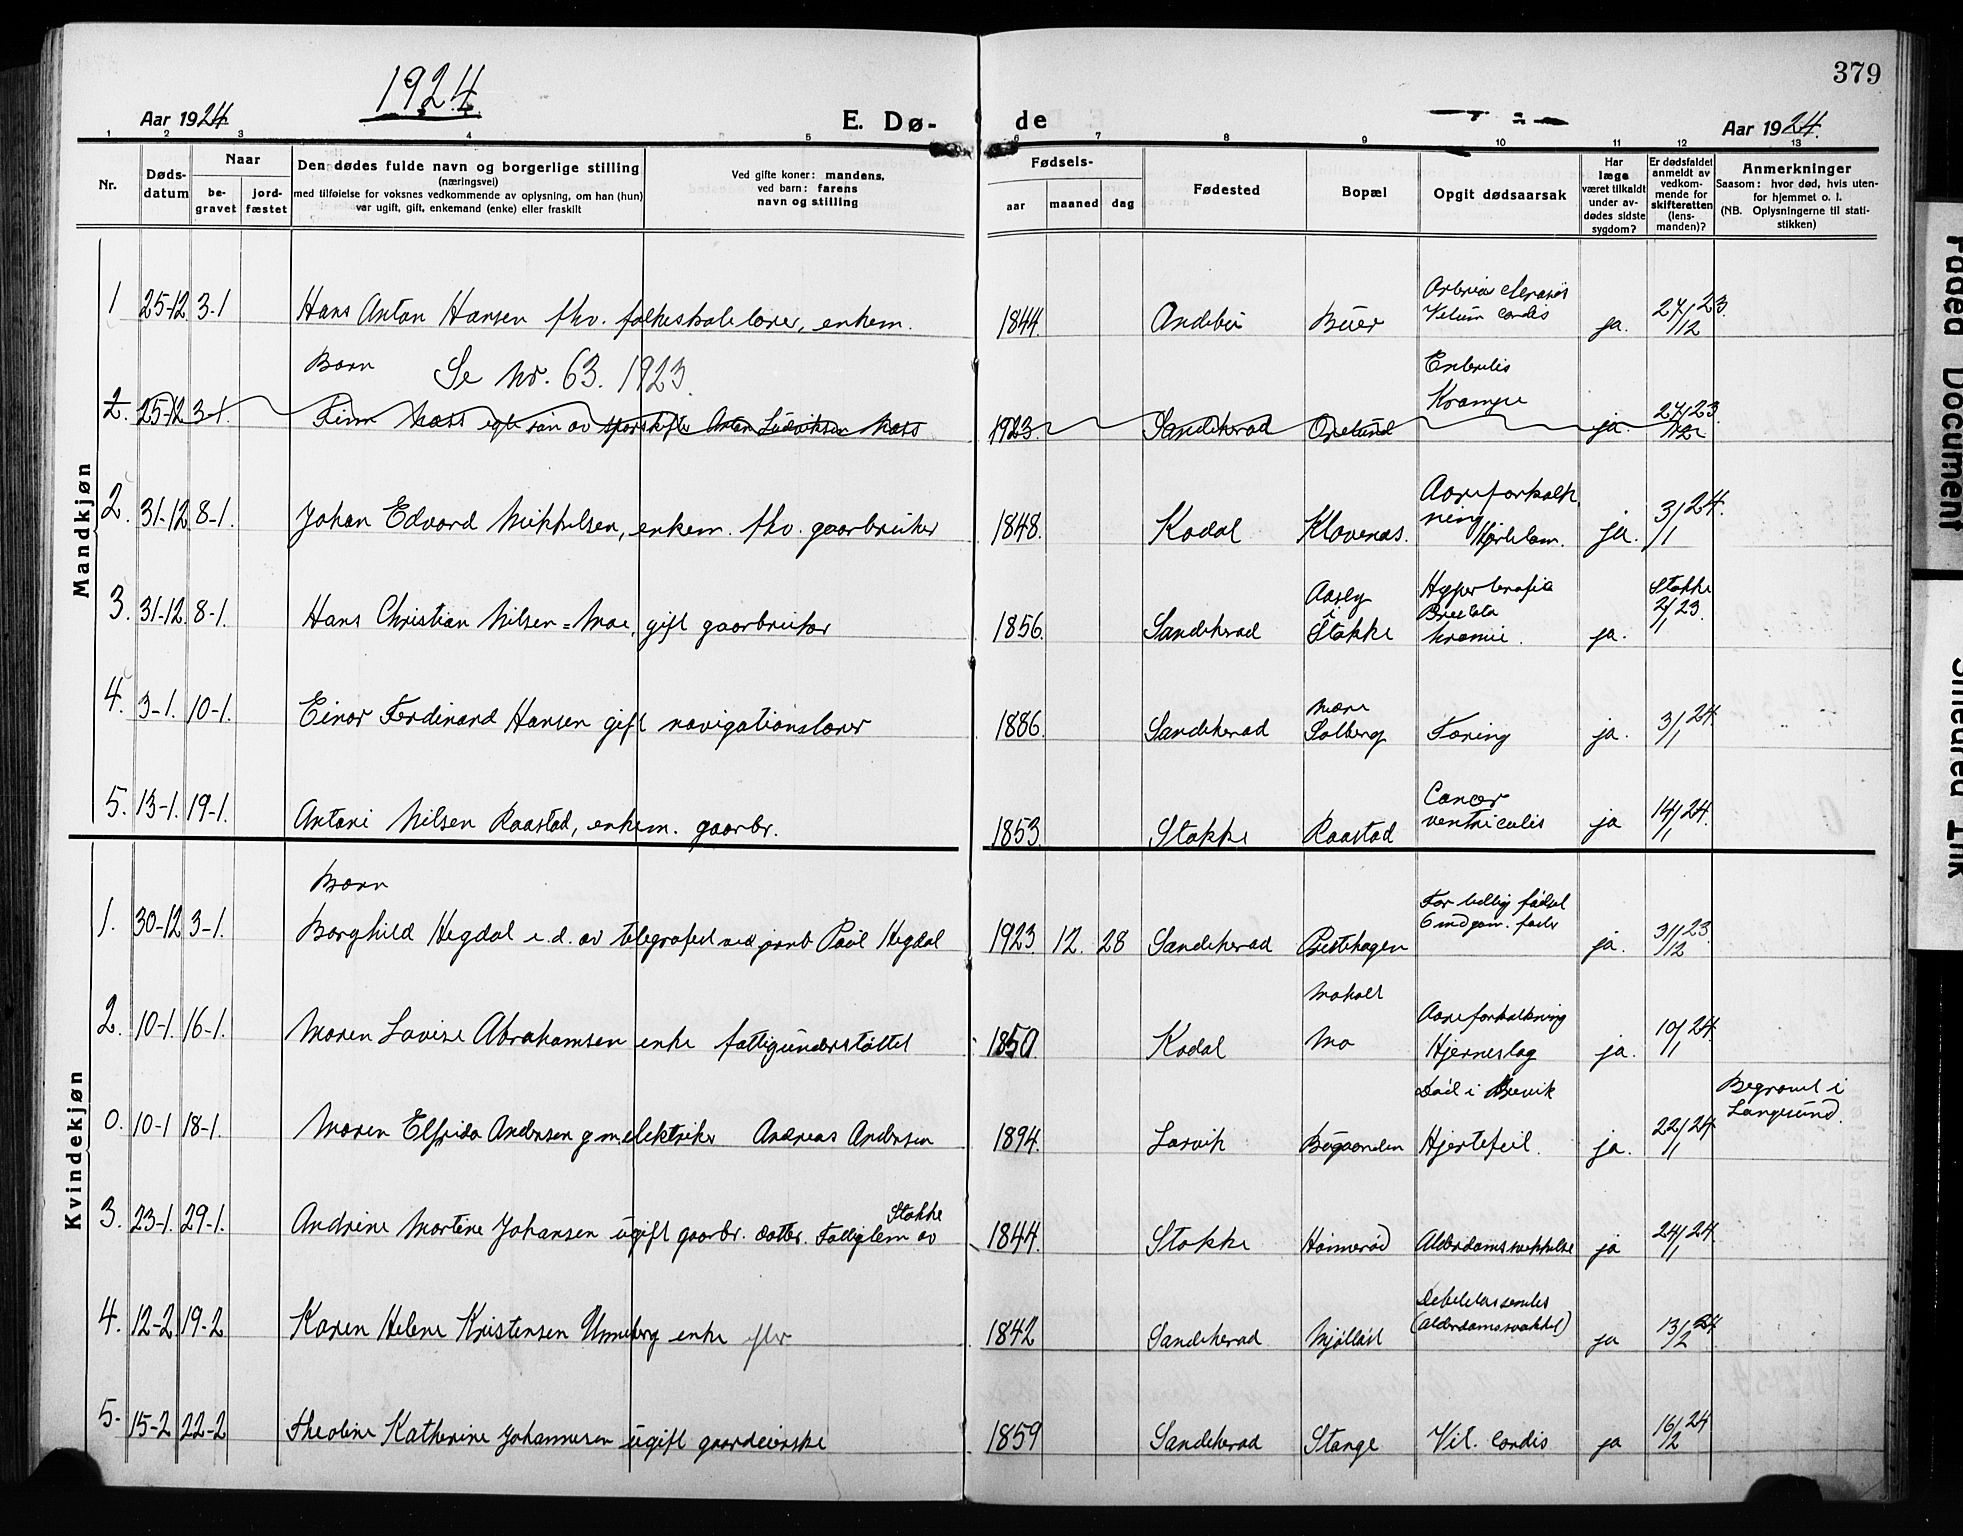 379
1924
Aar 1924
E. Dø-
de
Aar 1924.
1 2 3 4 5 6 7 8 9 10 11 12 13
Nr.
Døds-
datum
Naar
be-
gravet
jord-
fæstet
Den dødes fulde navn og borgerlige stilling
(næringsvei)
med tilføielse for voksnes vedkommende av oplysning, om han (hun)
var ugift, gift, enkemand (enke) eller fraskilt
Ved gifte koner: mandens,
ved barn: farens
navn og stilling
Fødsels-
aar
maaned
dag
Fødested
Bopæl
Opgit dødsaarsak
Har
læge
været tilkaldt
under av-
dødes sidste
sygdom?
Er dødsfaldet
anmeldt av
vedkom-
mende for
skifteretten
(lens-
manden)?
Anmerkninger
Saasom: hvor død, hvis uten-
for hjemmet o. l.
(NB. Oplysningerne til stati-
stikken)
Mandkjøn
1 25-12 3-1 Hans Anton Hansen fhv. folkeskolelærer, enkem. 1844. Andebu Buer
Velum cordis ja. 27/12 23.
Barn Se nr. 63. 1923.
Krampe
2. 25-12 3-1. Finn Mass egte søn av Anton Ludviksen Mass 1923. Sandeherad Ørelund ja. 27/12 23.
Aareforkalk
ning
2. 31-12 8-1. Johan Edvard Mikkelsen, enkem. fhv. gaardbruker 1848. Kodal Klavenes. Hjertelam. ja. 3/1 24.
Aasly
i
Stokke
2/1 23.
3. 31-12 8-1. Hans Christian Nilsen=Moe, gift gaardbruker 1856. Sandeherad Stokke ja.
4. 3-1. 10-1. Einar Ferdinand Hansen gift navigationslærer 1886. Sandeherad Solberg Tæring ja. 3/1 24.
Cancer
5. 13-1. 19-1. Antoni Nilsen Raastad, enkem. gaardbr. 1853. Stokke Raastad ventriculis ja 14/1 24.
Kvindekjøn
Barn
For tidlig fødsel
1. 30-12 3-1. Borghild Hegdal e. d. av telegrafist ved jernb Paul Hegdal 1923. 12. 28 Sandeherad Prestehagen ja. 31/12 23.
Moholt
Aareforkalkning
2. 10-1. 16-1. Maren Lovise Abrahamsen enke fattigunderstøttet 1850. Kodal Mo Hjerneslag ja. 10/1 24.
Død i Brevik
Begravet i
Langesund.
0. 10-1 18-1. Maren Elfrida Andersen g. m. elektriker Andreas Andersen 1894. Larvik Bugaarden Hjertefeil. ja. 22/1 24
Stokke
3. 23-1. 29-1. Andrine Martine Johansen ugift gaardbr. datter. Fattiglem av 1844. Stokke Haimerød Alderdomssvekkelse ja 24/1 24.
(Alderdomssvakhet)
4. 12-2. 19-2 Karen Helene Kristensen Unneberg enke efter 1842 Sandeherad Mjølløst ja 13/2 24
5. 15-2 22-2 Theoline Katherine Johannesen ugift gaardeierske 1859 Sandeherad Stange Vit. Cordis ja 16/2 24
Faded Document
Smeared Ink